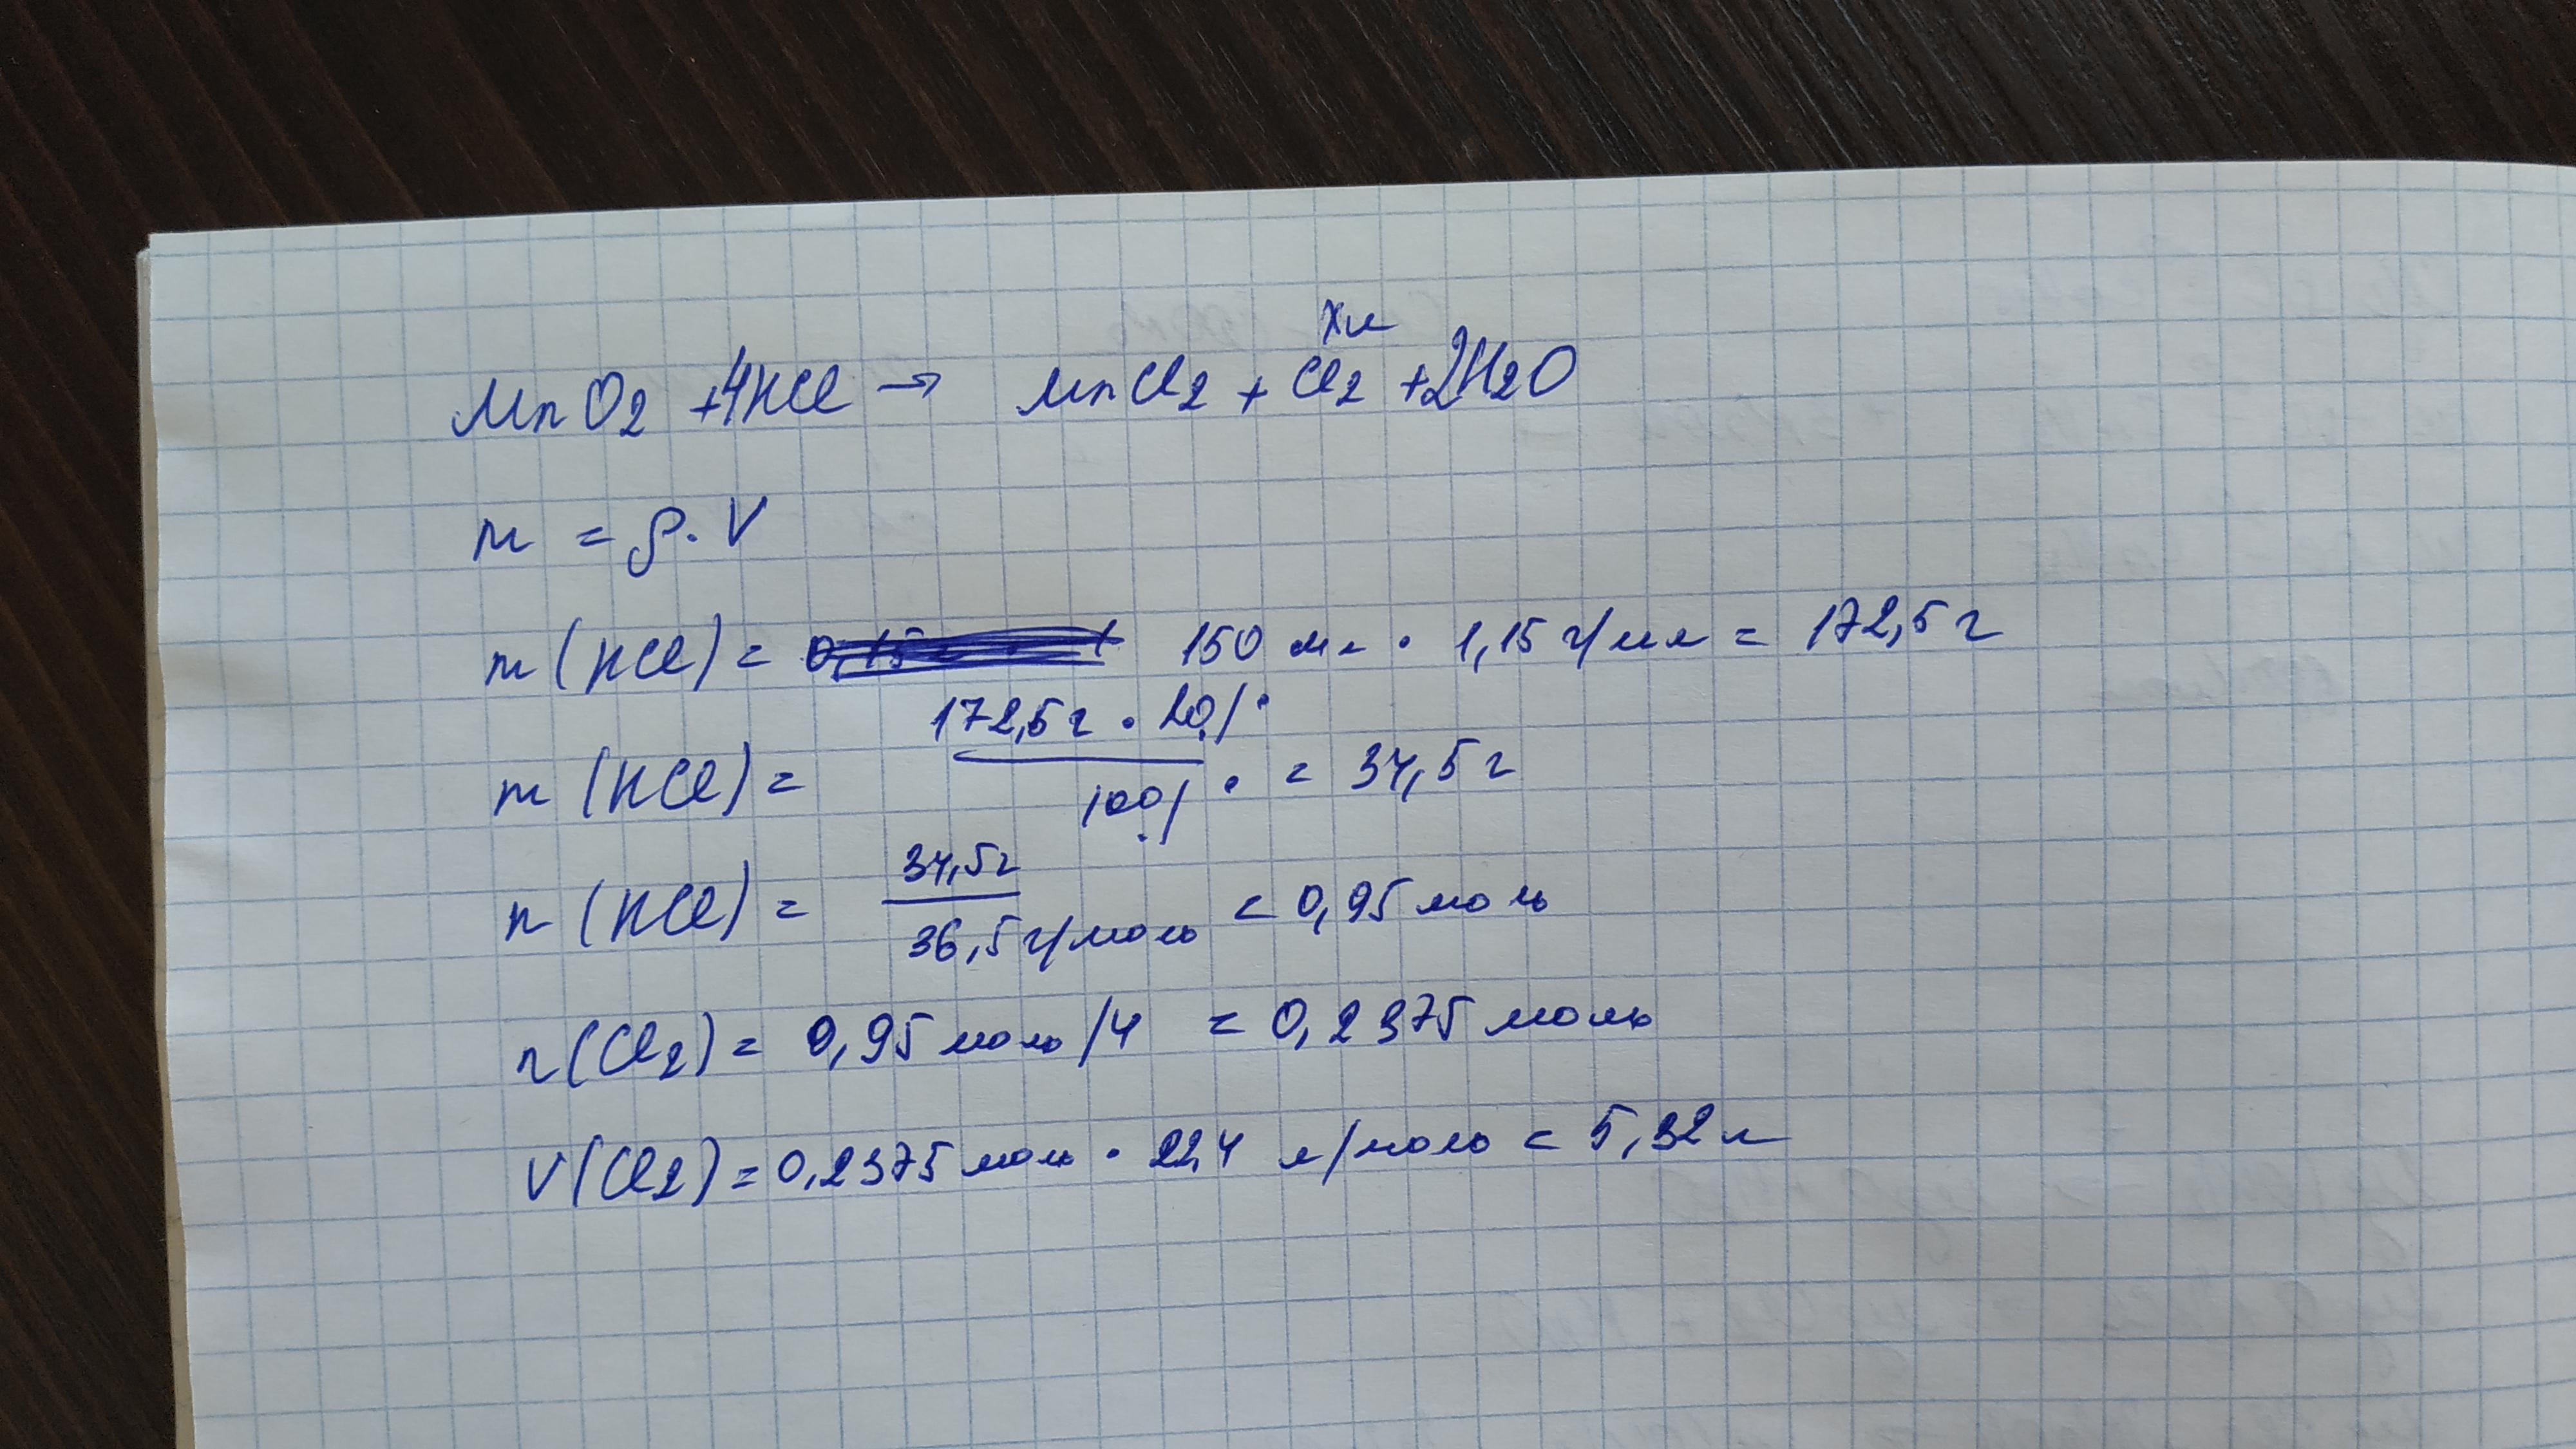 хл
MnO2 +4HCl → MnCl2 + Cl2 +2H2O
m = ρ·V
m (HCl) = 150 мл · 1,15 г/мл = 172,5 г
172,5 г · 20%
m (HCl) = = 34,5 г
100%
34,5г
n (HCl) = = 0,95 моль
36,5 г/моль
n(Cl2) = 0,95 моль/4 = 0,2375 моль
V(Cl2) = 0,2375 моль · 22,4 л/моль = 5,32 л